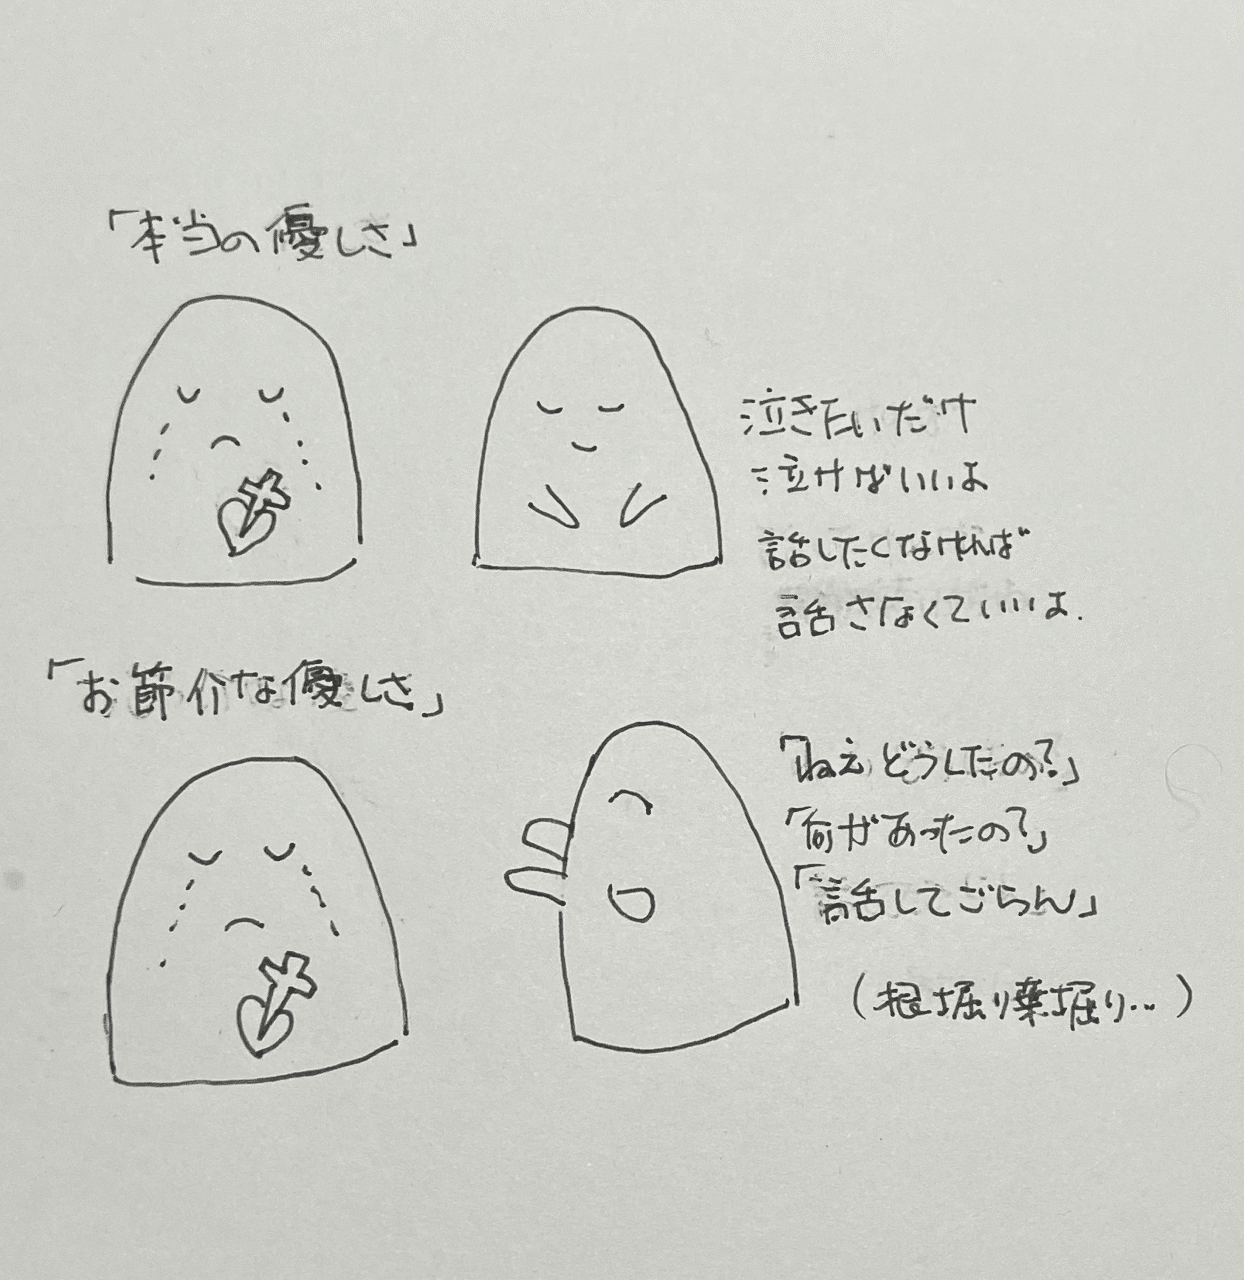 「本当の優しさ」
泣きたいだけ
泣けばいいよ
話したくなければ
話さなくていいよ.
「お節介な優しさ」
「ねえどうしたの?」
「何があったの?」
「話してごらん」
(根堀り葉堀り…)